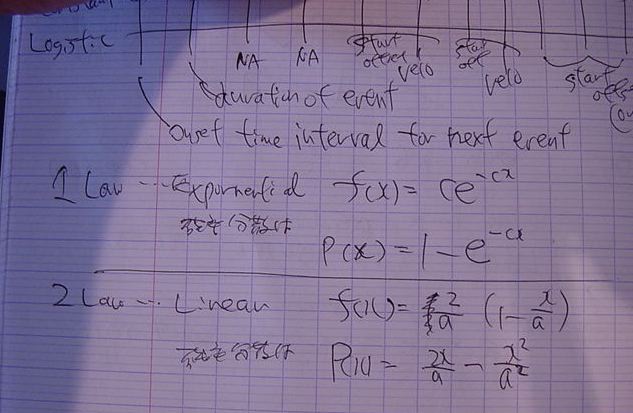 Logistic
NA NA start offset velo start off velo start offse
duration of event
onset time interval for next event
1 Law ... Exponential f(x) = ce^-cx
P(x) = 1 - e^-cx
2 Law ... Linear f(x) = 2/a (1 - x/a)
P(x) = 2x/a - x²/a²